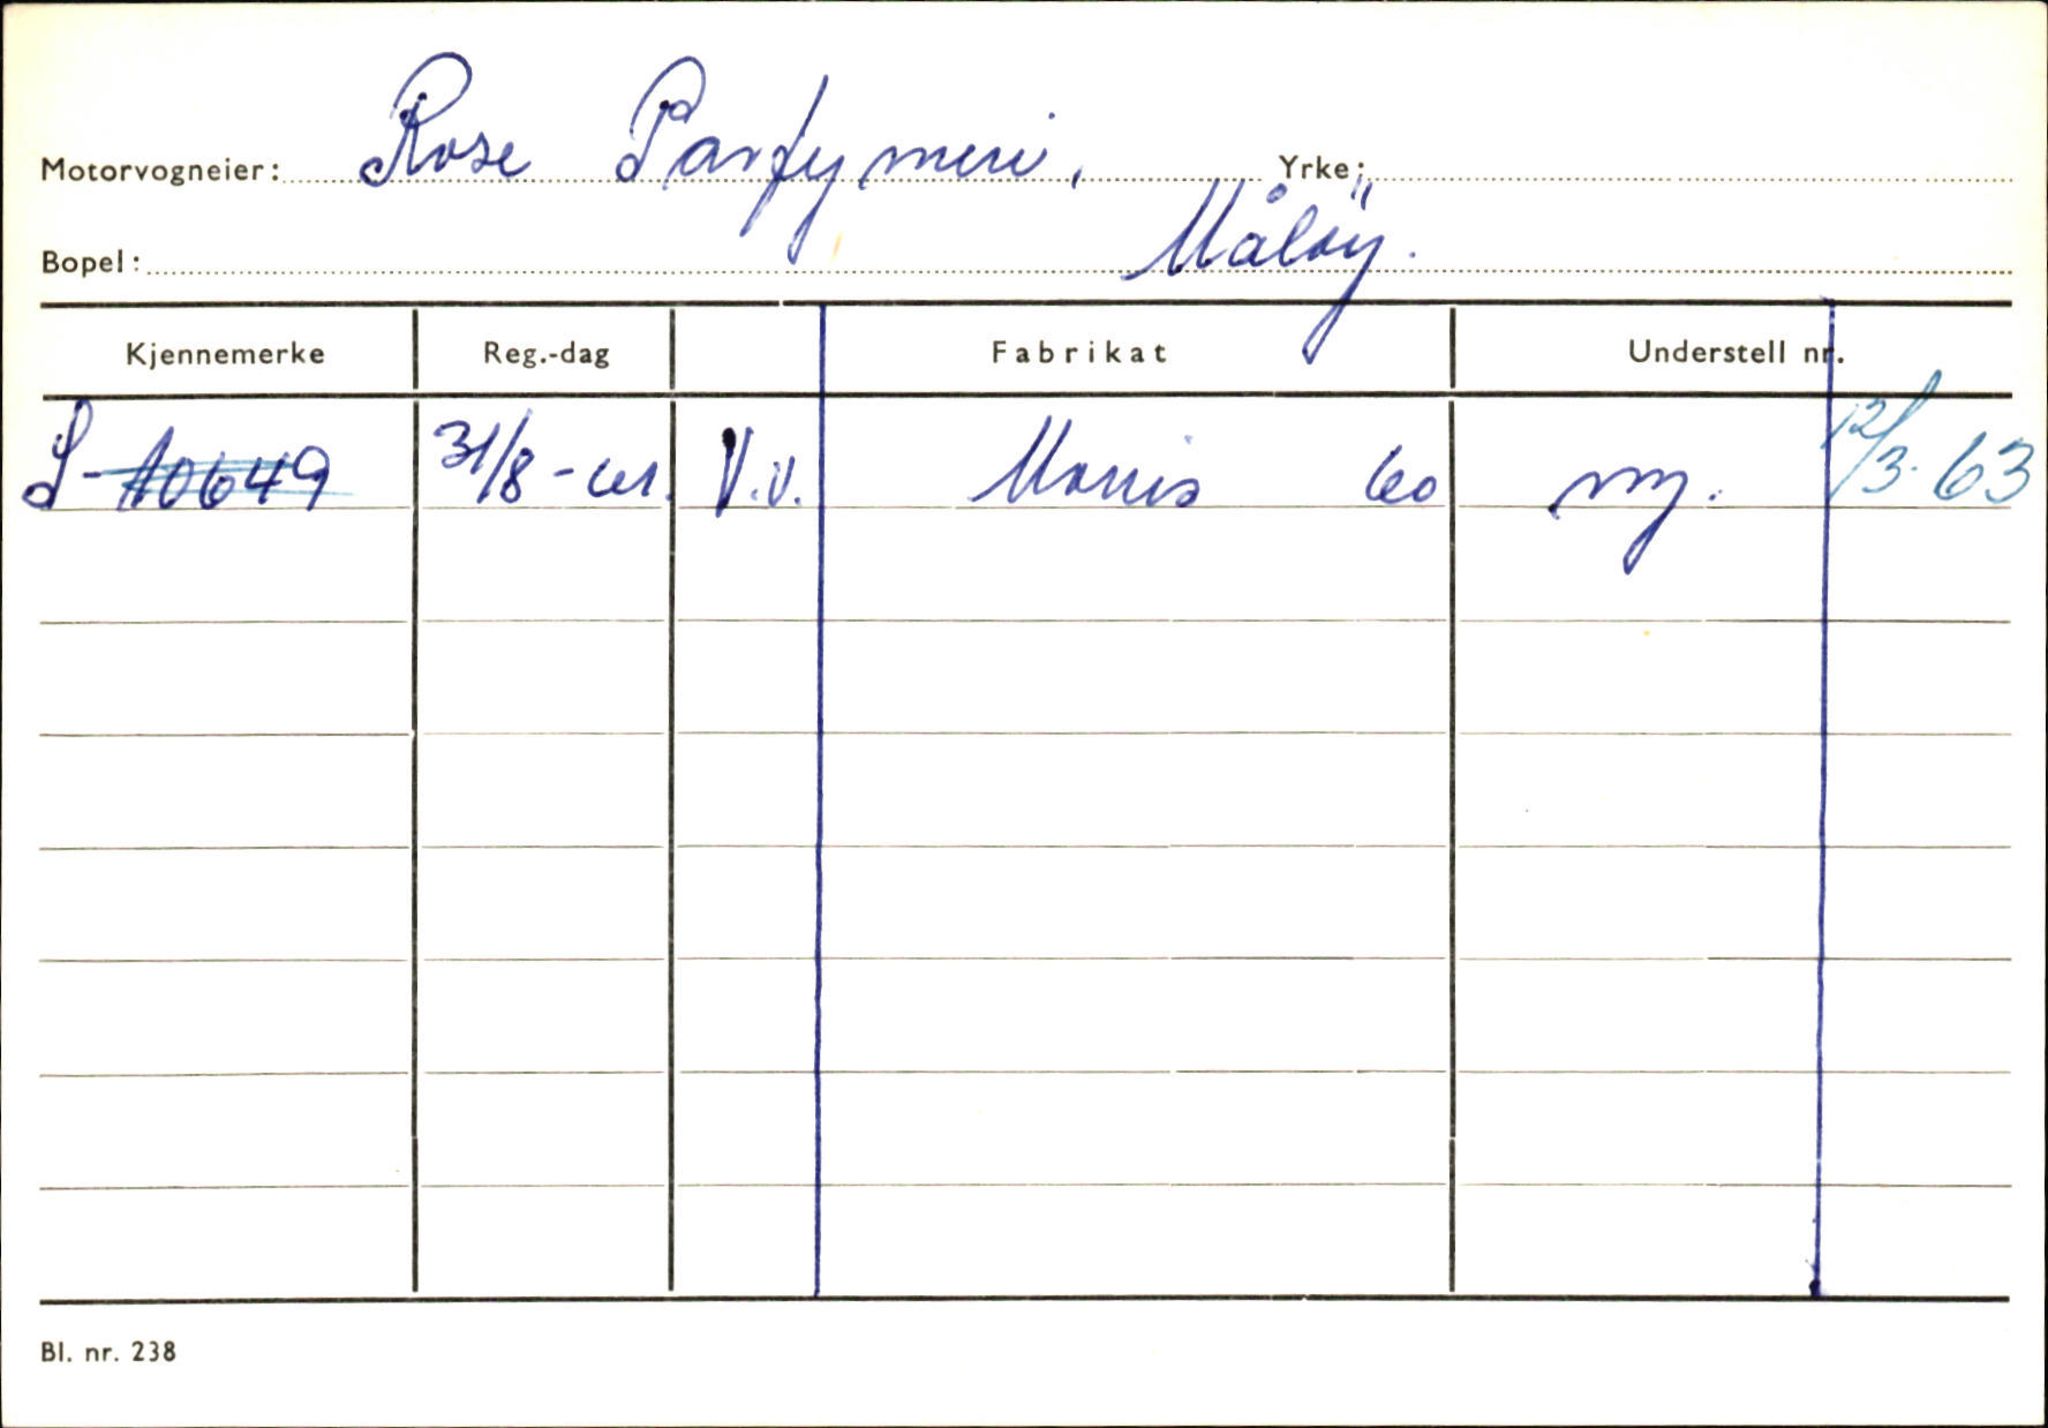 Motorvogneier: Rose Parfymeri, Yrke:
Bopel: Måløy.
Kjennemerke Reg.-dag Fabrikat Understell nr.
S-10649 31/8-61. V.v. Morris 60 ny. 12/3-63
Bl. nr. 238